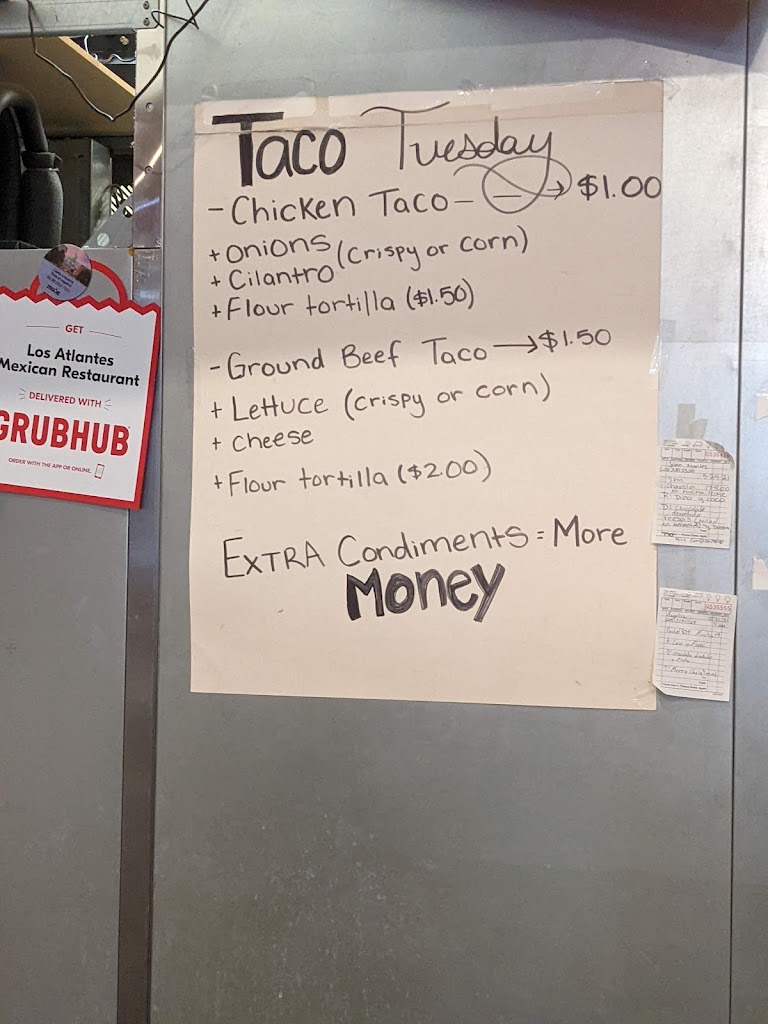 Taco Tuesday
- Chicken Taco - → $1.00
+ onions (crispy or corn)
+ Cilantro
+ Flour tortilla ($1.50)
- Ground Beef Taco → $1.50
+ Lettuce (crispy or corn)
+ cheese
+ Flour tortilla ($2.00)
EXTRA Condiments = More
Money
GET
Los Atlantes
Mexican Restaurant
DELIVERED WITH
GRUBHUB
ORDER WITH THE APP OR ONLINE.